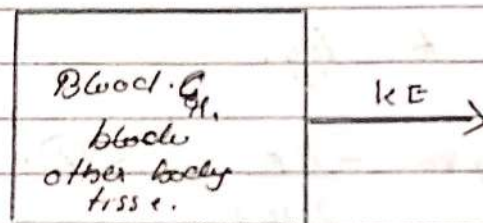 Blood.
blode
other body
tisse.
KE